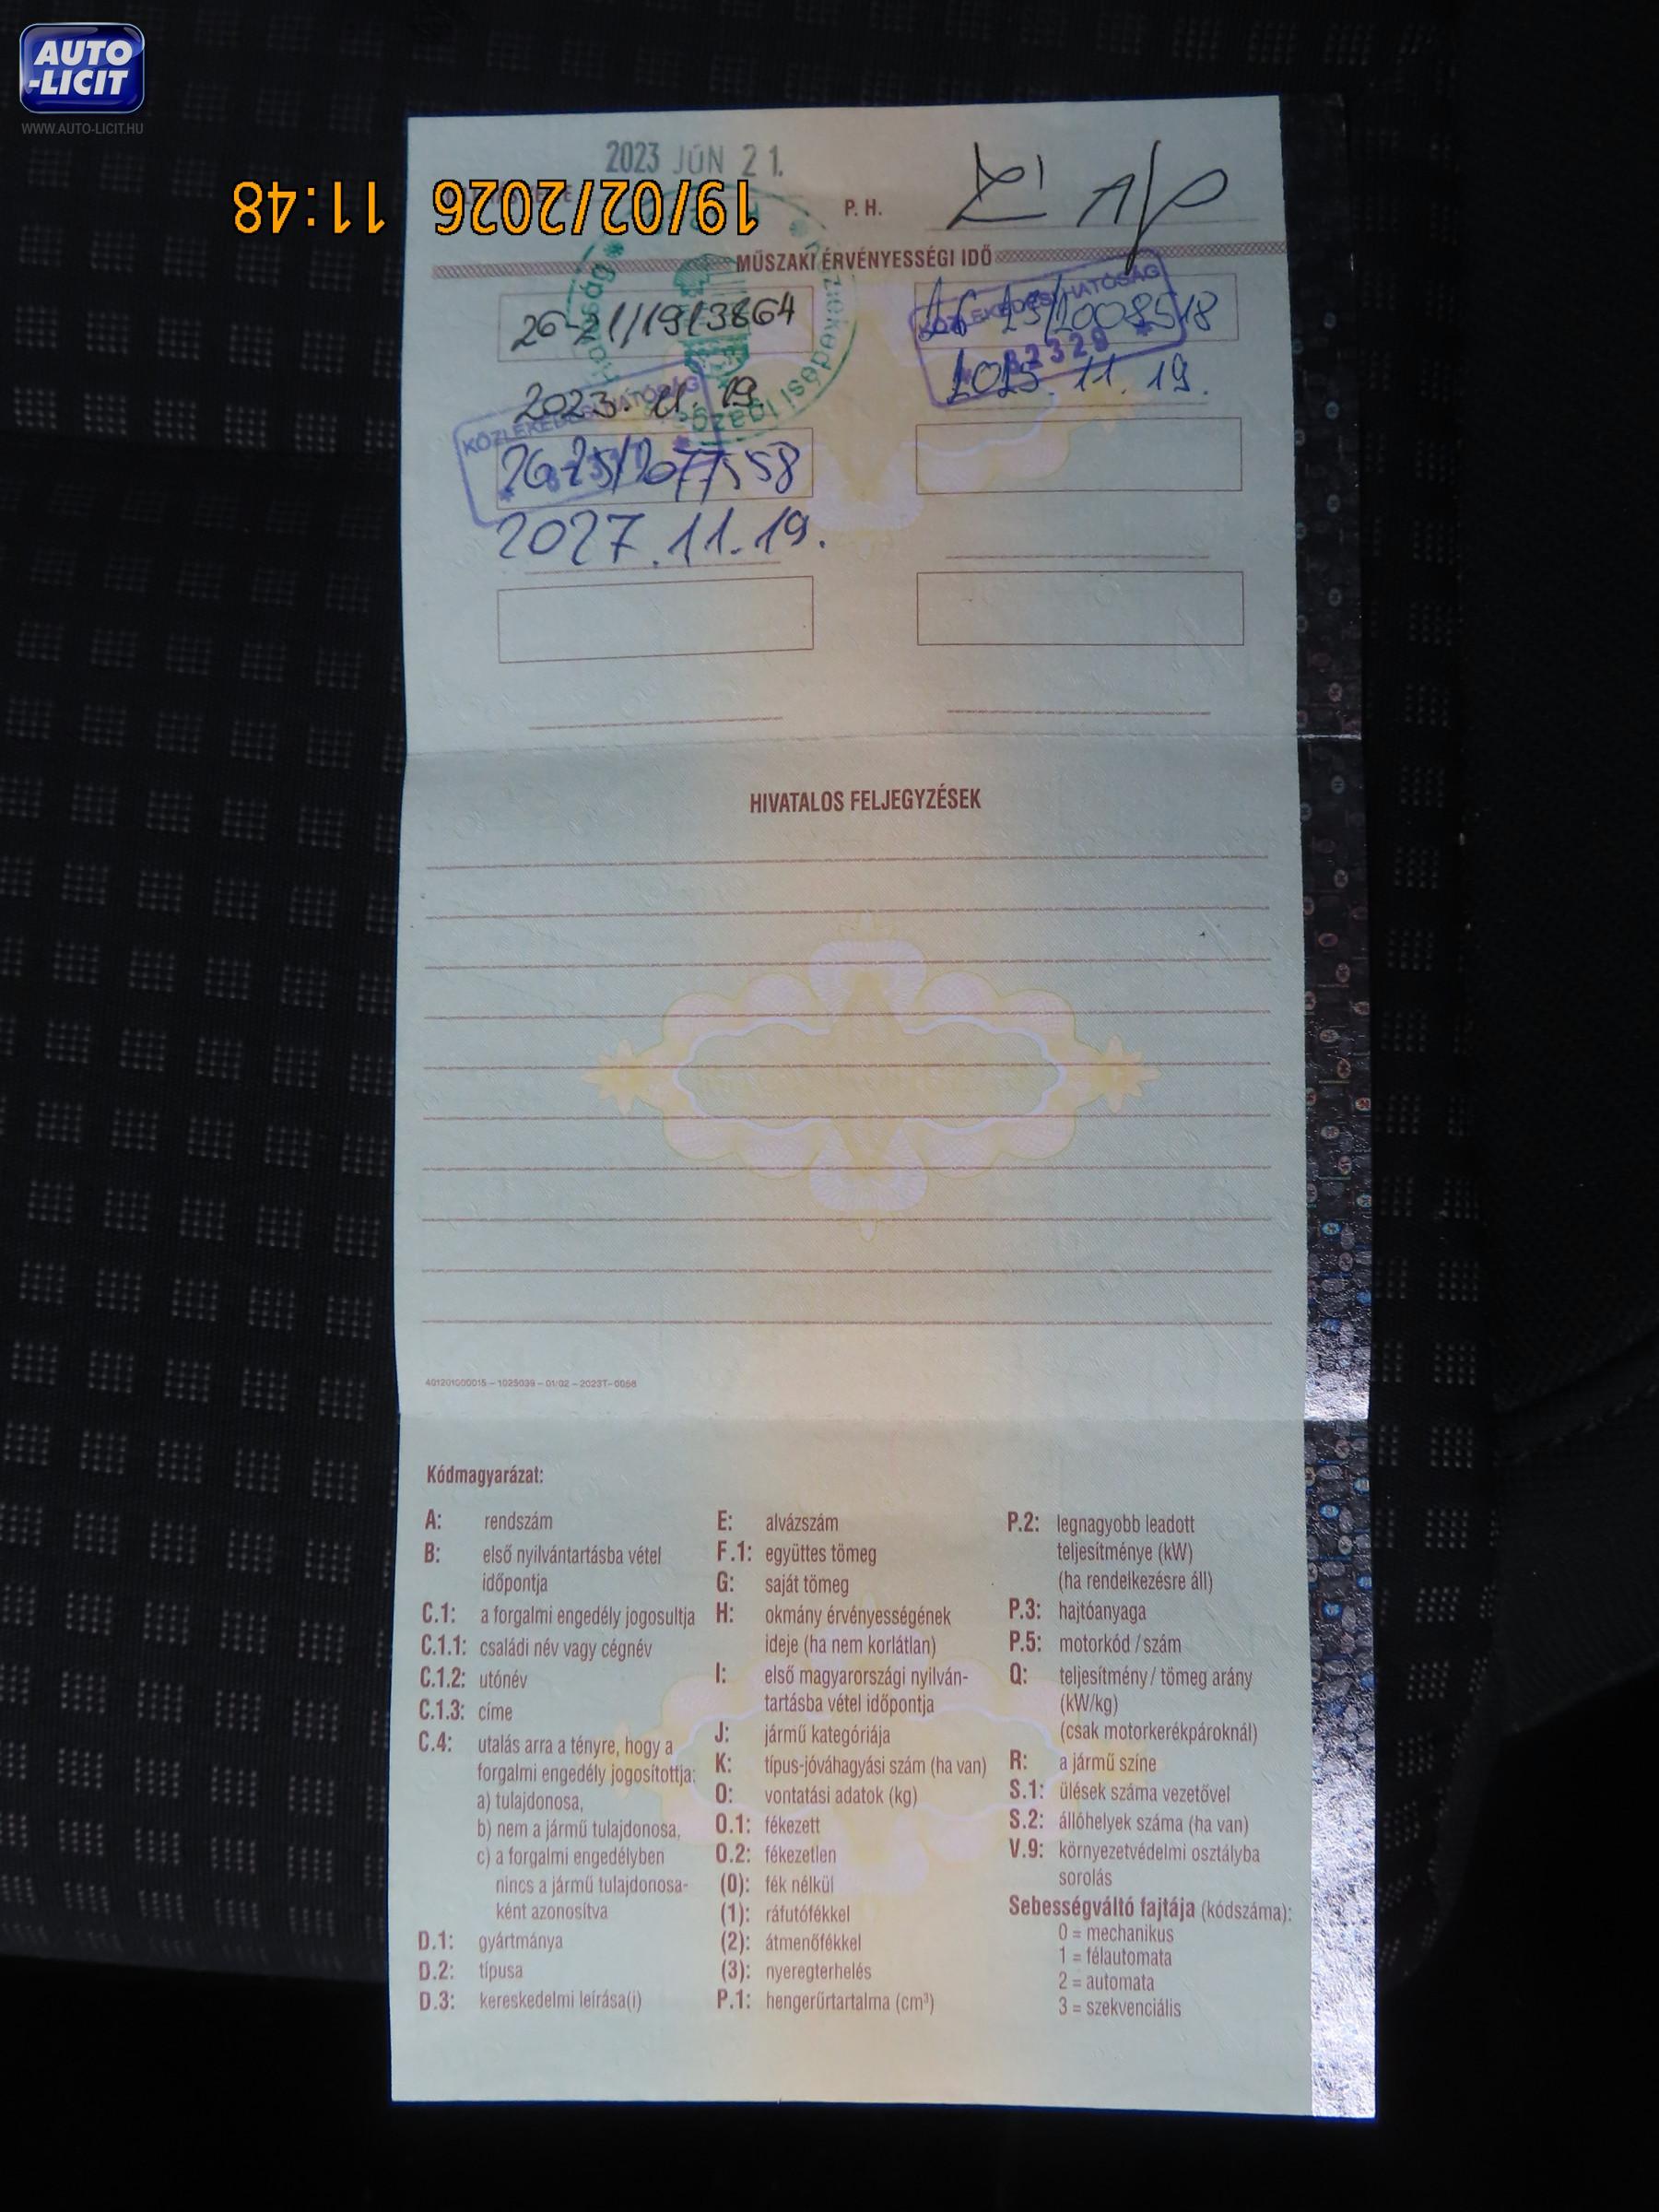 AUTO
-LICIT
WWW.AUTO-LICIT.HU
2023 JÚN 21.
19/02/2026 11:48
P. H.
MŰSZAKI ÉRVÉNYESSÉGI IDŐ
26-21/19/3864
2023. 11. 19
KÖZLEKEDÉSI HATÓSÁG
2025. 11. 19.
KÖZLEKEDÉSI HATÓSÁG
26-25/2077558
2027.11.19.
HIVATALOS FELJEGYZÉSEK
401201000015 – 1025039 – 01/02 – 2023T– 0056
Kódmagyarázat:
A: rendszám
B: első nyilvántartásba vétel
időpontja
C.1: a forgalmi engedély jogosultja
C.1.1: családi név vagy cégnév
C.1.2: utónév
C.1.3: címe
C.4: utalás arra a tényre, hogy a
forgalmi engedély jogosítottja:
a) tulajdonosa,
b) nem a jármű tulajdonosa,
c) a forgalmi engedélyben
nincs a jármű tulajdonosa-
ként azonosítva
D.1: gyártmánya
D.2: típusa
D.3: kereskedelmi leírása(i)
E: alvázszám
F.1: együttes tömeg
G: saját tömeg
H: okmány érvényességének
ideje (ha nem korlátlan)
I: első magyarországi nyilván-
tartásba vétel időpontja
J: jármű kategóriája
K: típus-jóváhagyási szám (ha van)
O: vontatási adatok (kg)
O.1: fékezett
O.2: fékezetlen
(0): fék nélkül
(1): ráfutófékkel
(2): átmenőfékkel
(3): nyeregterhelés
P.1: hengerűrtartalma (cm³)
P.2: legnagyobb leadott
teljesítménye (kW)
(ha rendelkezésre áll)
P.3: hajtóanyaga
P.5: motorkód / szám
Q: teljesítmény / tömeg arány
(kW/kg)
(csak motorkerékpároknál)
R: a jármű színe
S.1: ülések száma vezetővel
S.2: állóhelyek száma (ha van)
V.9: környezetvédelmi osztályba
sorolás
Sebességváltó fajtája (kódszáma):
0 = mechanikus
1 = félautomata
2 = automata
3 = szekvenciális